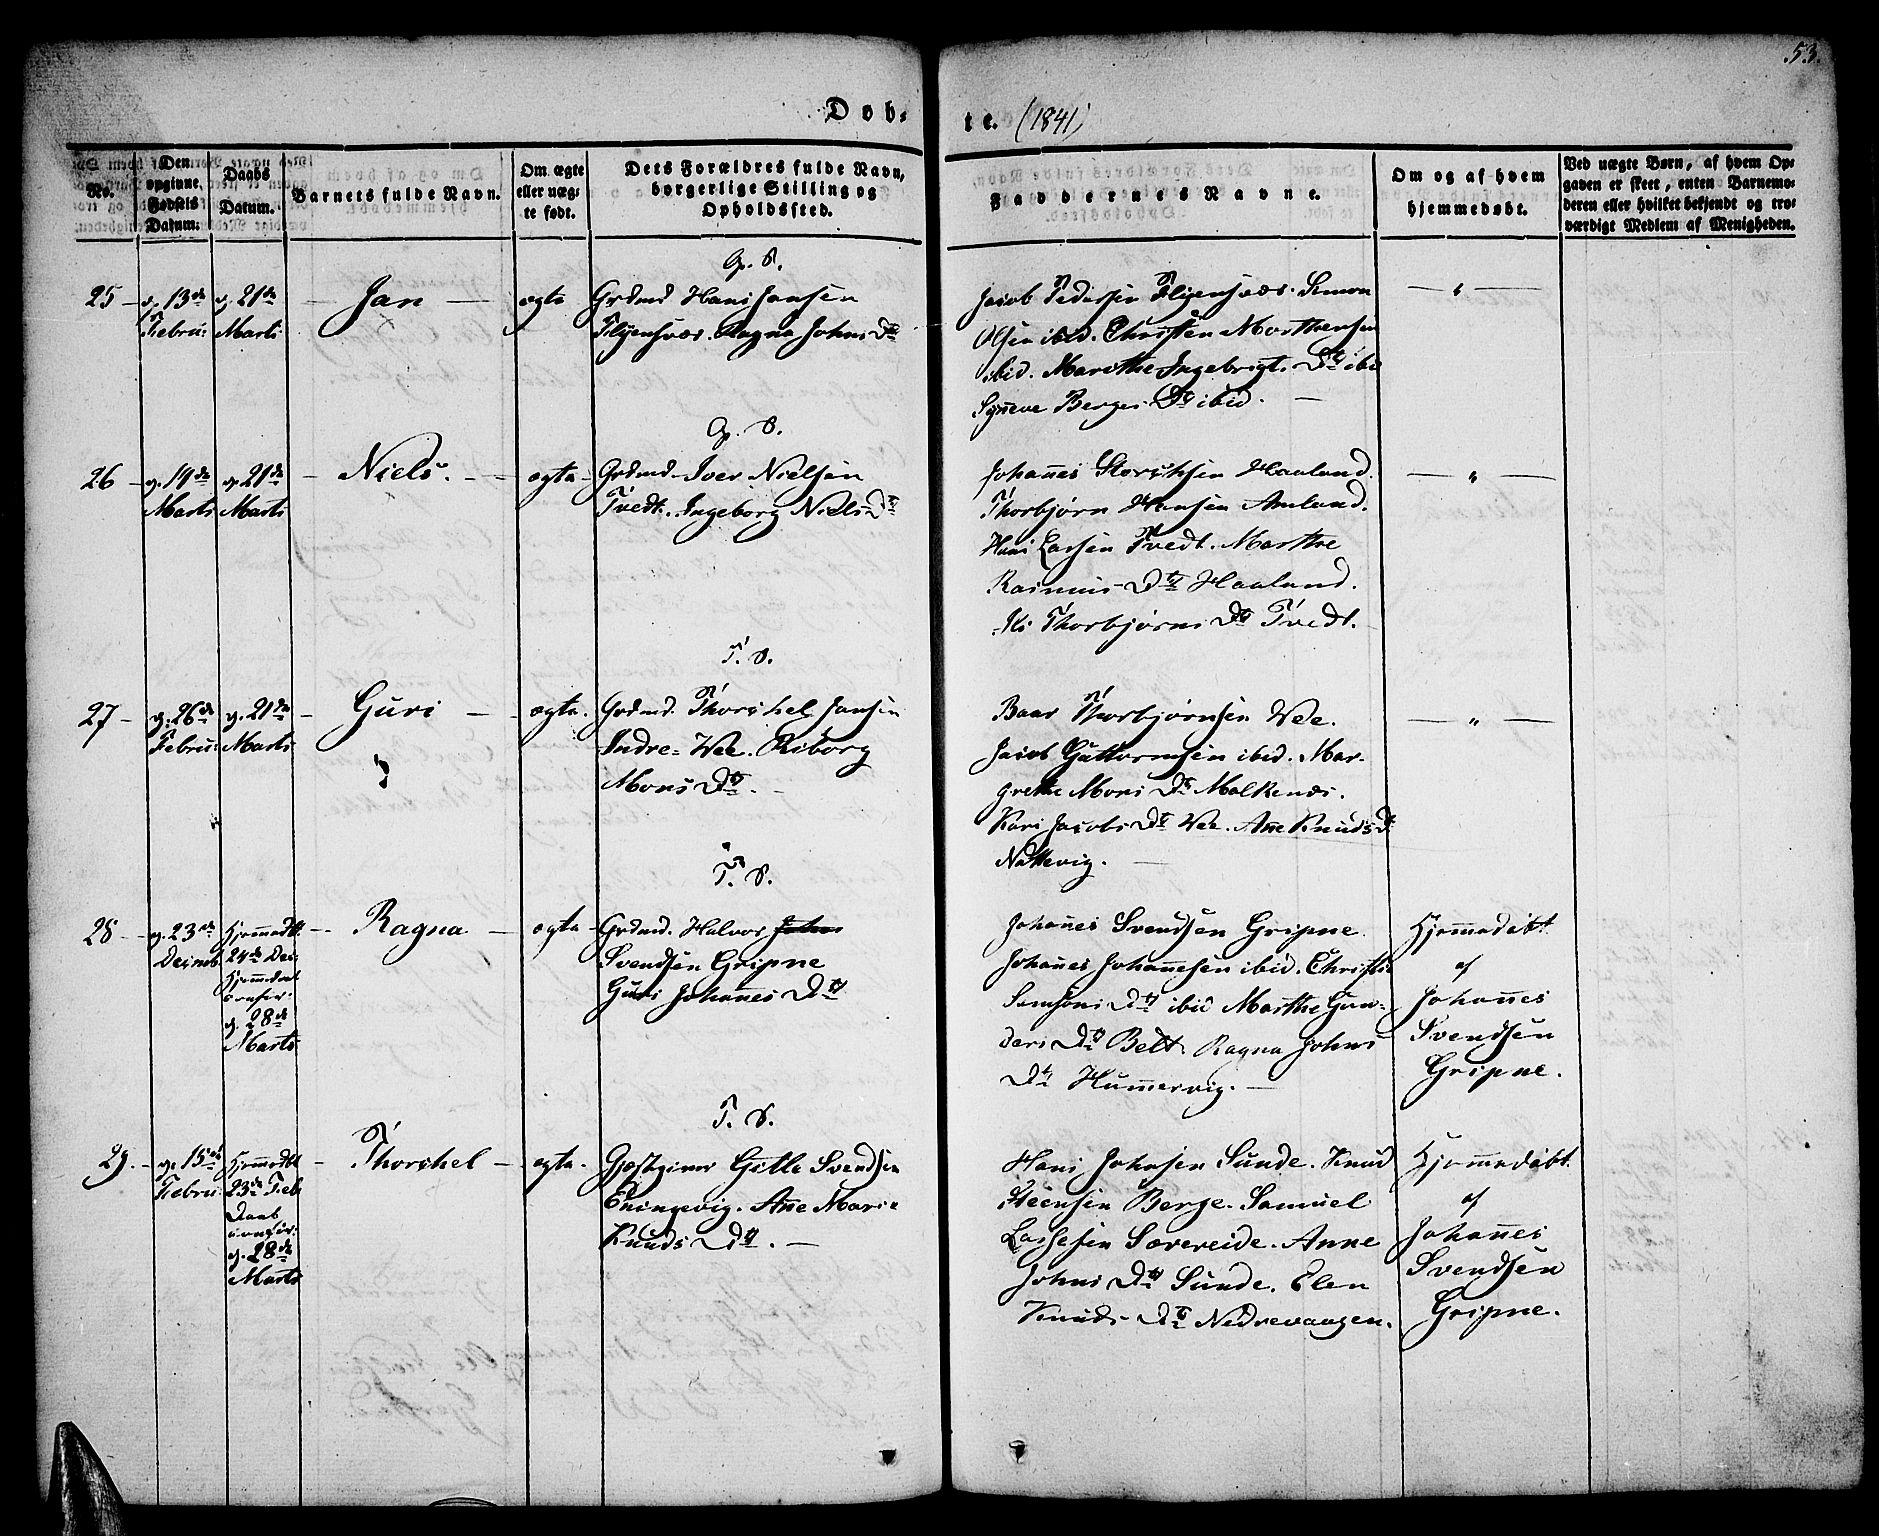 53.
Døb-
te. (1841)
No.
Den
opgivne
Fødsels
Datum.
Daabs
Datum.
Barnets fulde Navn.
Om ægte
eller uæg-
te født.
Dets Forældres fulde Navn,
borgerlige Stilling og
Opholdssted.
Faddernes Navne.
Om og af hvem
hjemmedøbt.
Ved uægte Børn, af hvem Op-
gaven er skeet, enten Barnemo-
deren eller hvilket bekjendt og tro-
værdigt Medlem af Menigheden.
25 - d. 13de Febru:
d. 21de Marti
- Jan -
ægte
Grdmd Hans Jansen
Ragna Johns Dtr
Jacob Pedersen Simon
Olsen ibid. Christen Morthensen
ibid. Marithe Ingebrigt. Dtr ibid
Synneve Berges Dtr ibid. -
- " -
26 - d. 19de Marts
d. 21de Marts
- Niels. -
ægte -
Grdmd. Iver Nielsen
Tvedt. Ingeborg Niels Dtr
Johannes Haaland.
Thorbjørn Hansen Amland.
Hans Larsen Tvedt. Marthe
Rasmus Dtr Haaland.
Thorbjørns Dtr Tvedt.
- " -
T. S.
27 - d. 26de Febru:
d. 21de Marts
- Guri -
ægte.
Grdmd. Thorchel Jansen
Indre-Vee. Riborg
Mons Dtr. -
Baar Thorbjørnsen Vee.
Jacob Guttormsen ibid. Mar-
grethe Mons Dtr Malkenes.
Kari Jacobs Dtr Vee. Anne Knuds Dtr
Nattevig. -
- " -
T. S.
28 - d. 23de Decmb.
Hjemmedbt
24de Dec.
d. 28de
Marts
- Ragna -
ægte -
Grdmd. Halvor John
Svendsen Gripne
Guri Johannes Dtr
Johannes Svendsen Gripne.
Johannes Johannesen ibid. Christi
Samsons Dtr ibid Marthe Gun-
ders Dtr Belt. Ragna Johns
Dtr Hummervig. -
Hjemmedøbt
af
Johannes
Svendsen
Gripne.
T. S.
29. - d. 15de Febru:
Hjemmedbt
23de Feb.
Daab
d. 28de
Marts
- Thorchel -
ægte.
Gjestgiver Gitle Svendsen
Eningevig. Anne Marie
Knuds Dtr. -
Hans Johnsen Sunde. Knud
Steensen Berge. Samuel
Lassesen Særereide. Anne
Johns Dtr Sunde. Elen
Knuds Dtr Nedrevaagen.
Hjemmedøbt
af
Johannes
Svendsen
Gripne.